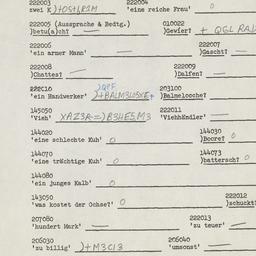 222003 222004
zwei x)+OStbR1M 'eine reiche Frau' o
222005 (Aussprache & Bedtg.) 010022
)betu(a)cht )Gewfer?
222006 222007
'ein armer Mann' )Gascht?
222008 222009
)Chattes? )Dalfen?
222010 203100
'ein Handwerker' )Balmelocche?
145050 222011
'Vieh' 'Viehhändler'
144020 144030
'eine schlechte Kuh' o )Boore? o
144070 144073
'eine trächtige Kuh' o )battersch? o
144080
'ein junges Kalb' o
143050 222012
'was kostet der Ochse?' o )schuckt
207080 222013
'hundert Mark' 'zu teuer'
206030 206040
'zu billig' )+M3CI3 'umsonst'